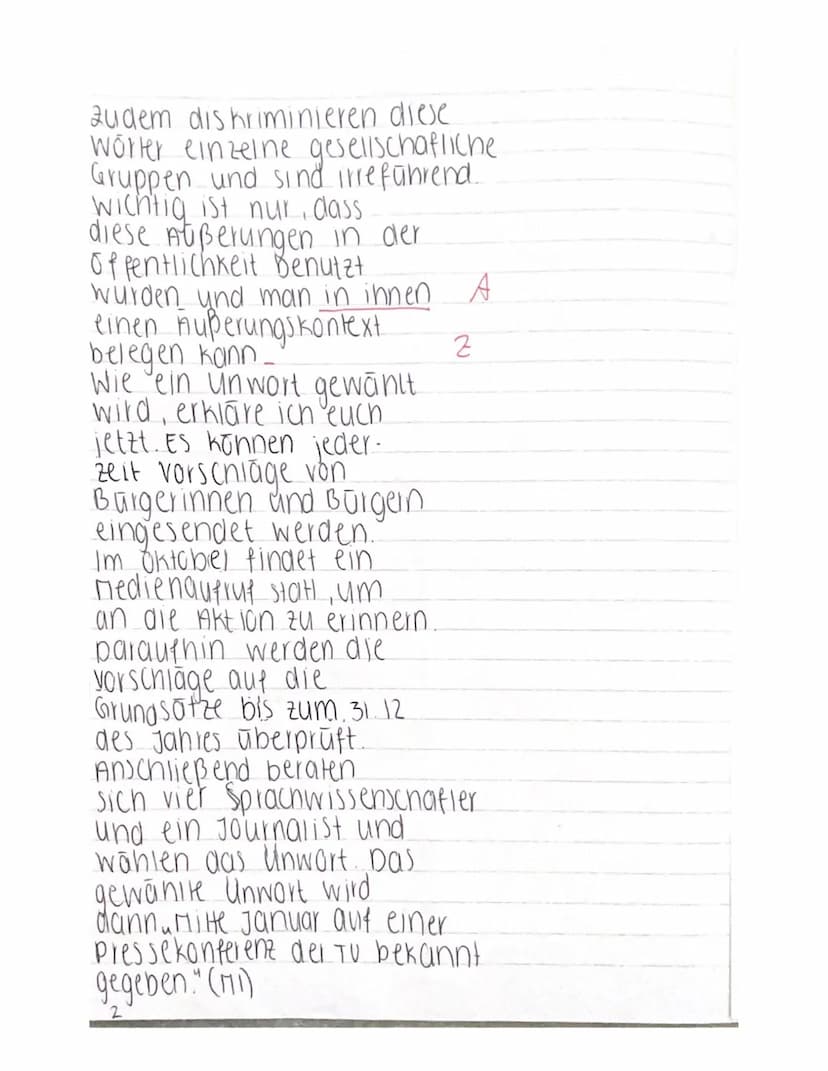 Zudem diskriminieren diese
Wörter einzelne gesellschafliche
Gruppen und sind irreführend.
Wichtig ist nur, dass
diese Äußerungen in der
Öffentlichkeit benutzt
wurden und man in ihnen A
einen Äußerungskontext
belegen kann Z
Wie ein Unwort gewählt
wird, erkläre ich euch
jetzt. Es können jeder-
zeit Vorschläge von
Bürgerinnen und Bürgern
eingesendet werden.
Im Oktober findet ein
Medienaufruf statt, um
an die Aktion zu erinnern.
Daraufhin werden die
Vorschläge auf die
Grundsätze bis zum 31.12
des Jahres überprüft.
Anschließend beraten
sich vier Sprachwissenschafler
und ein Journalist und
wählen das Unwort. Das
gewählte Unwort wird
dann „Mitte Januar auf einer
Pressekonferenz der TU bekannt
gegeben." (M1)
2